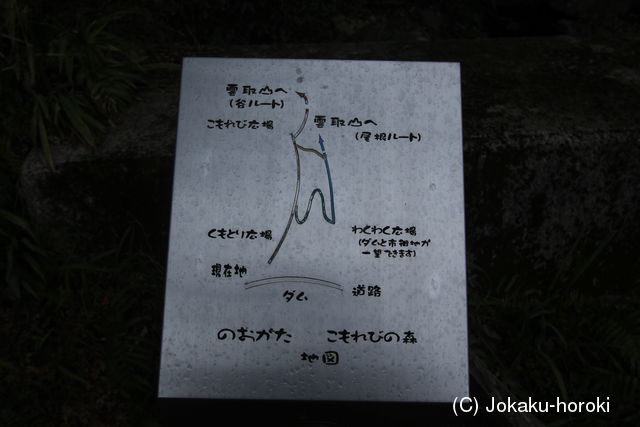 雲取山へ
(谷ルート)
こもれび広場
雲取山へ
(尾根ルート)
くもとり広場
わくわく広場
(ダムと市街地が
一望できます)
現在地
ダム
道路
のおがた こもれびの森
地図
(C) Jokaku-horoki